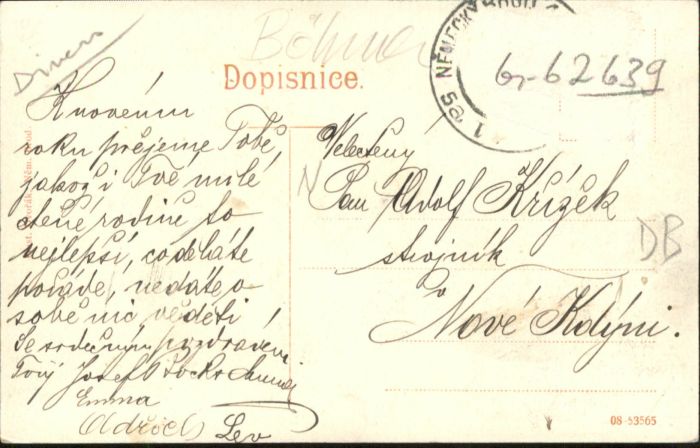 Divers
Böhmen
Dopisnice.
NĚMECKÝ BROD
6r-62639
K novému
roku přejeme Tobě,
jakož i Tvé milé
ctěné rodině to
nejlepší, co děláte
pořáde, nedáte o
sobě nic věděti
Se srdečným pozdravem
Tvůj Josef
Emma
Oldřich Lev
Velectěný
N
Pan Adolf Křížek
strojník
DB
v
Nové Kdýni.
08-53565